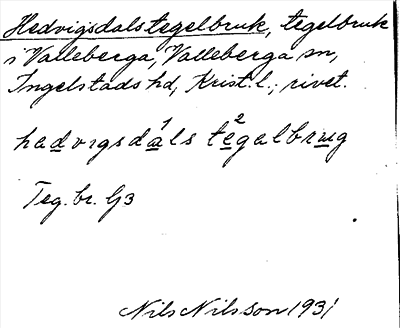 Hedvigsdals tegelbruk, tegelbruk
i Valleberga, Valleberga sn,
Ingelstads hd, Krist. l.; rivet.
hedvıgsda¹ls te²galbrug
Teg. br. G3
Nils Nilsson 1931